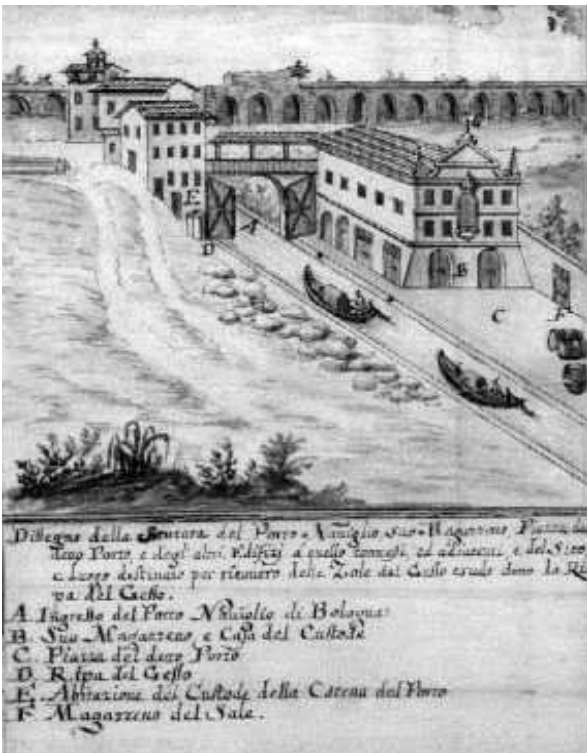 E
A
D
B
C
F
Dissegno della del Porto Naviglio, suo Magazzeno, Piazza
detto Porto, e degl' altri Edifizj a quello connessi, ed adiacenti, e del Sito,
e Luogo destinato per delle Zolle dal Gesso crudo detto la Ri
va del Gesso.
A. Ingresso del Porto Naviglio di Bologna
B. Suo Magazzeno e Casa del Custode
C. Piazza del detto Porto
D. Ripa del Gesso
E. Abitazione del Custode della Catena del Porto
F. Magazzeno del Sale.